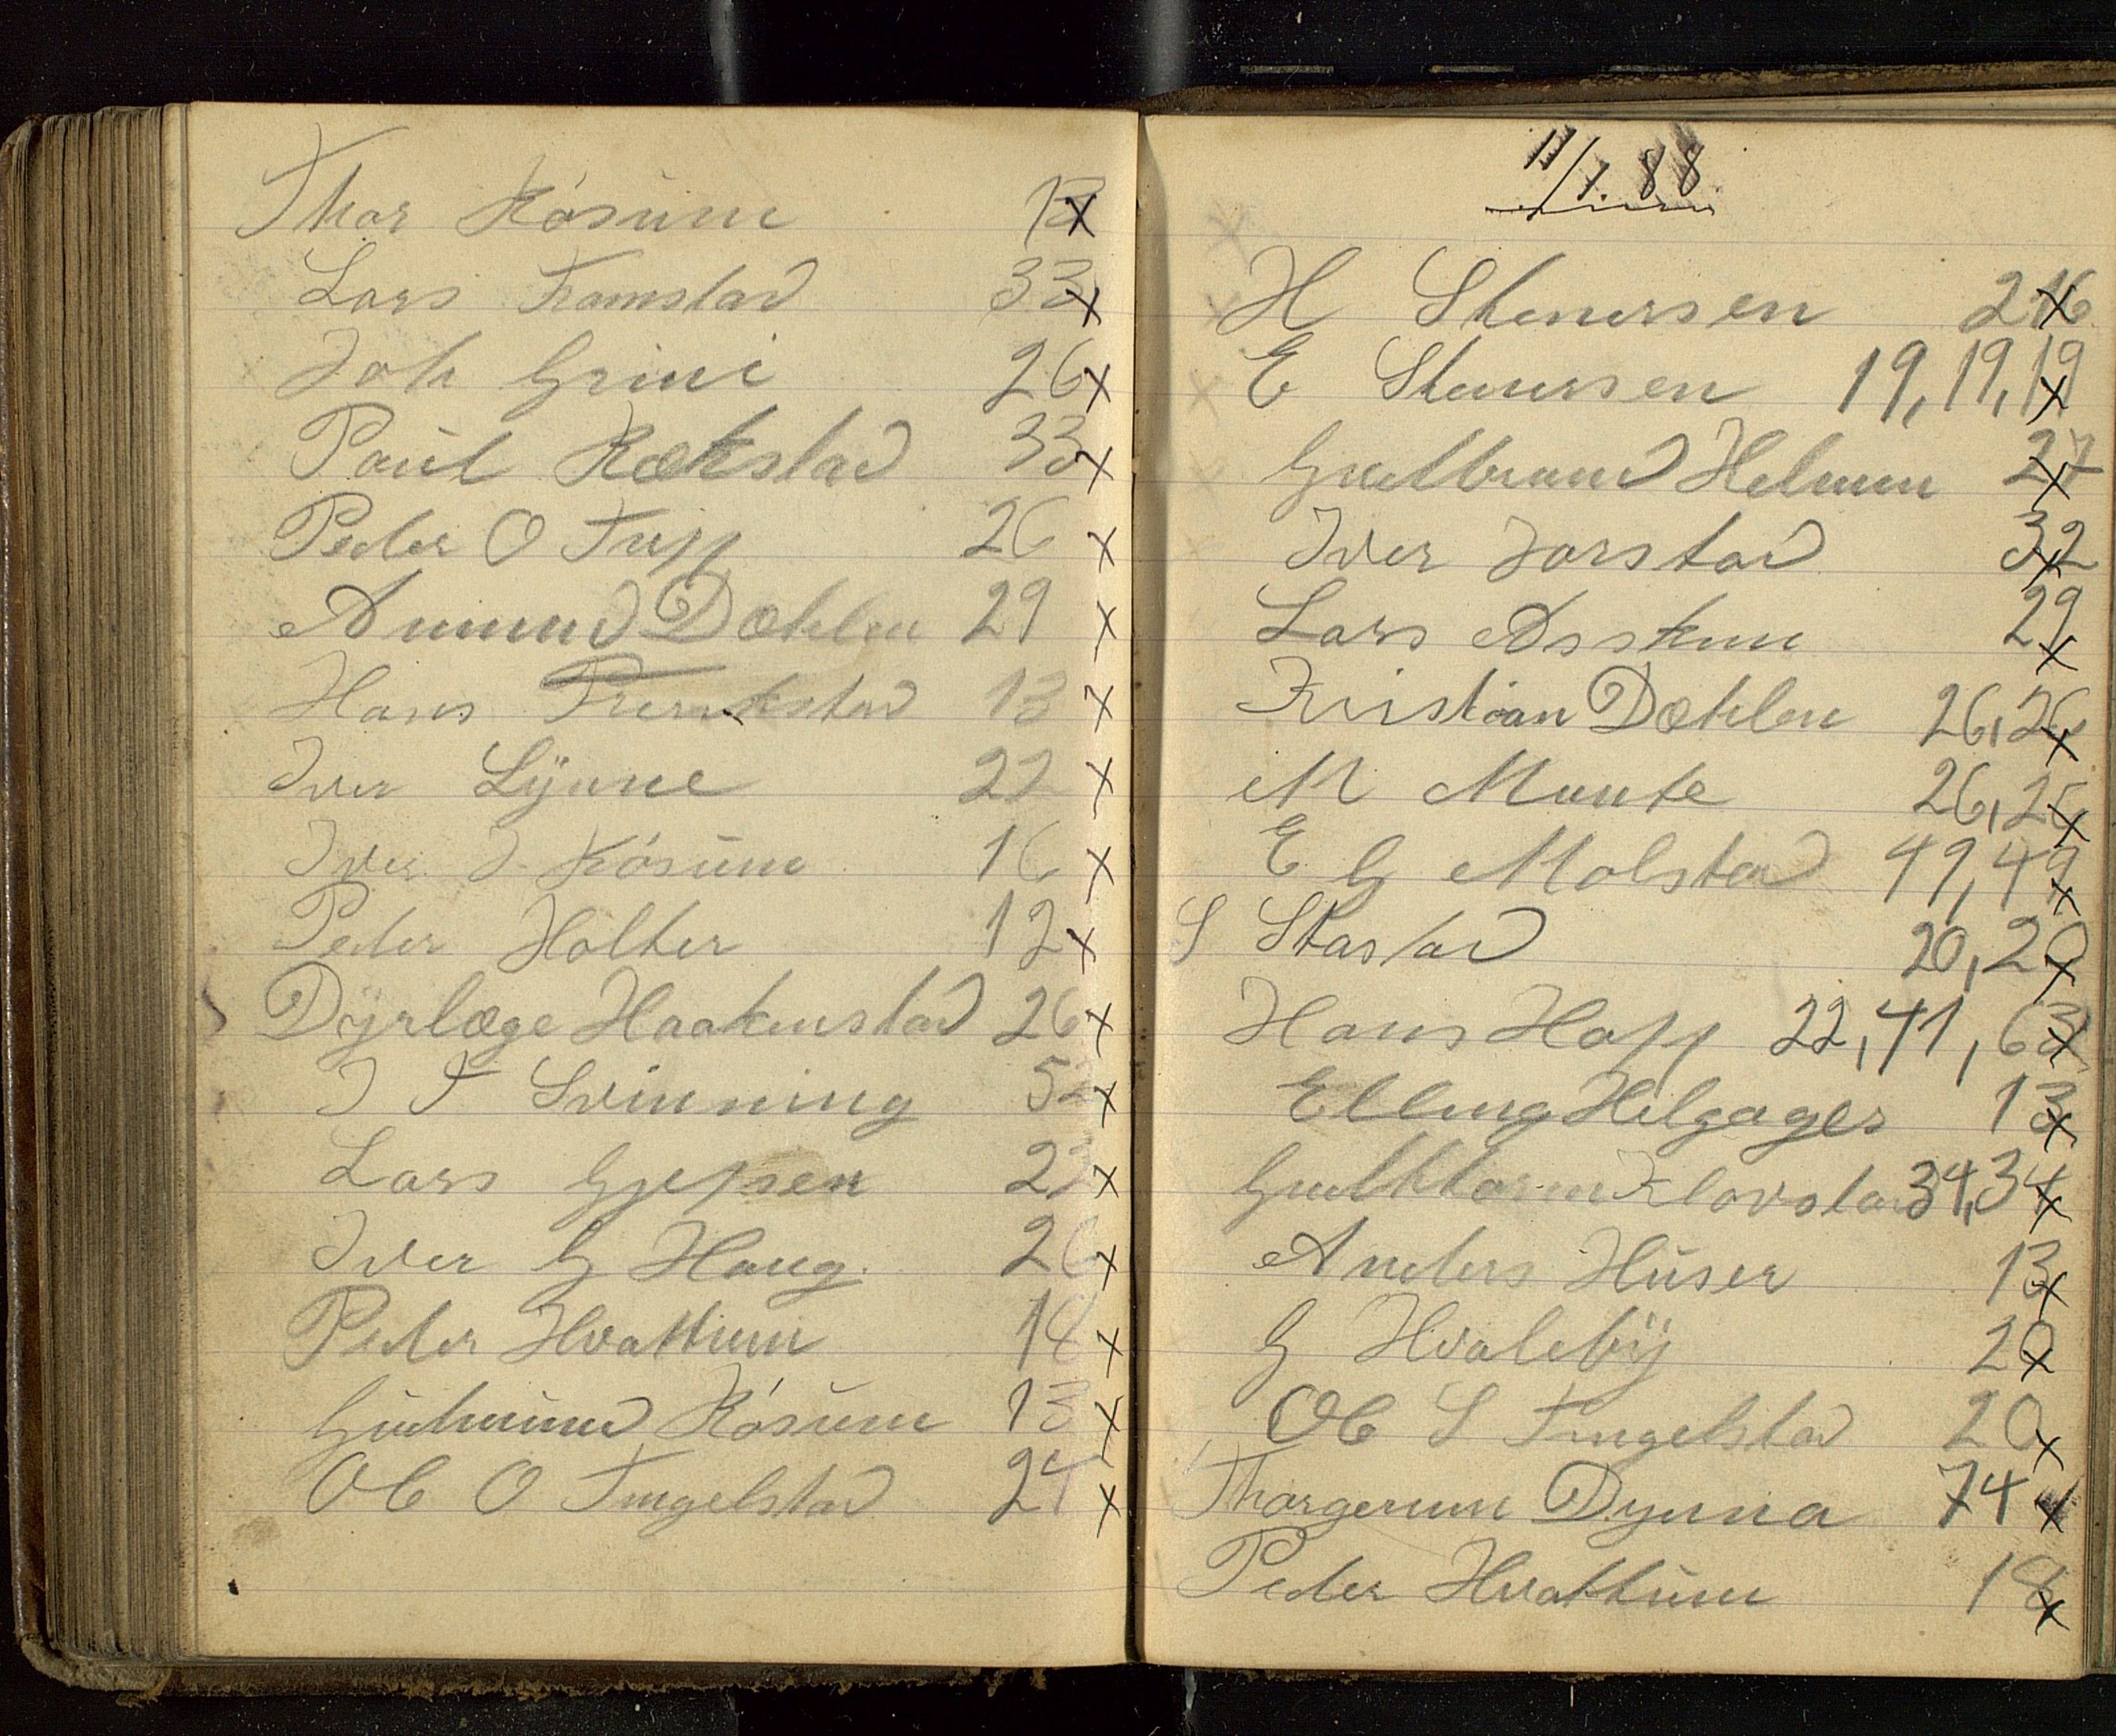 Thor Kösum 13 x
Lars Framstad 33 x
Joh Grini 26 x
Paul Rækstad 33 x
Peder O Trøpp 26 x
Amund Dæhlen 29 x
Hans 13 x
Iver Lynne 22 x
Iver J Kösum 16 x
Peder Holter 12 x
Dyrlæge Haakenstad 26 x
J T Svinning 52 x
Lars Gjepsen 23 x
Iver G Haug. 26 x
Peder Hvattum 18 x
Gudmund Kösum 13 x
Ole O Tingelstad 24 x
11/7. 88.
H Stenersen x
E Stenersen 19, 19, 19 x
Gudbrand Helmen 27 x
Iver Jorstad 32 x
Lars Asskun 29 x
Kristian Dæhlen 26, 26 x
M Munte 26, 26 x
E G Molstad 49, 49 x
S Stastad 20, 20 x
Hans Hopp 22, 41, 63 x
Elling Helgager 13 x
Gudttorm Klovstad 34, 34 x
Anders Huser 13 x
G Hvaleby 20 x
Ole S Tingelstad 20 x
Thorgerum Dynna 74 x
Peder Hvattum 18 x